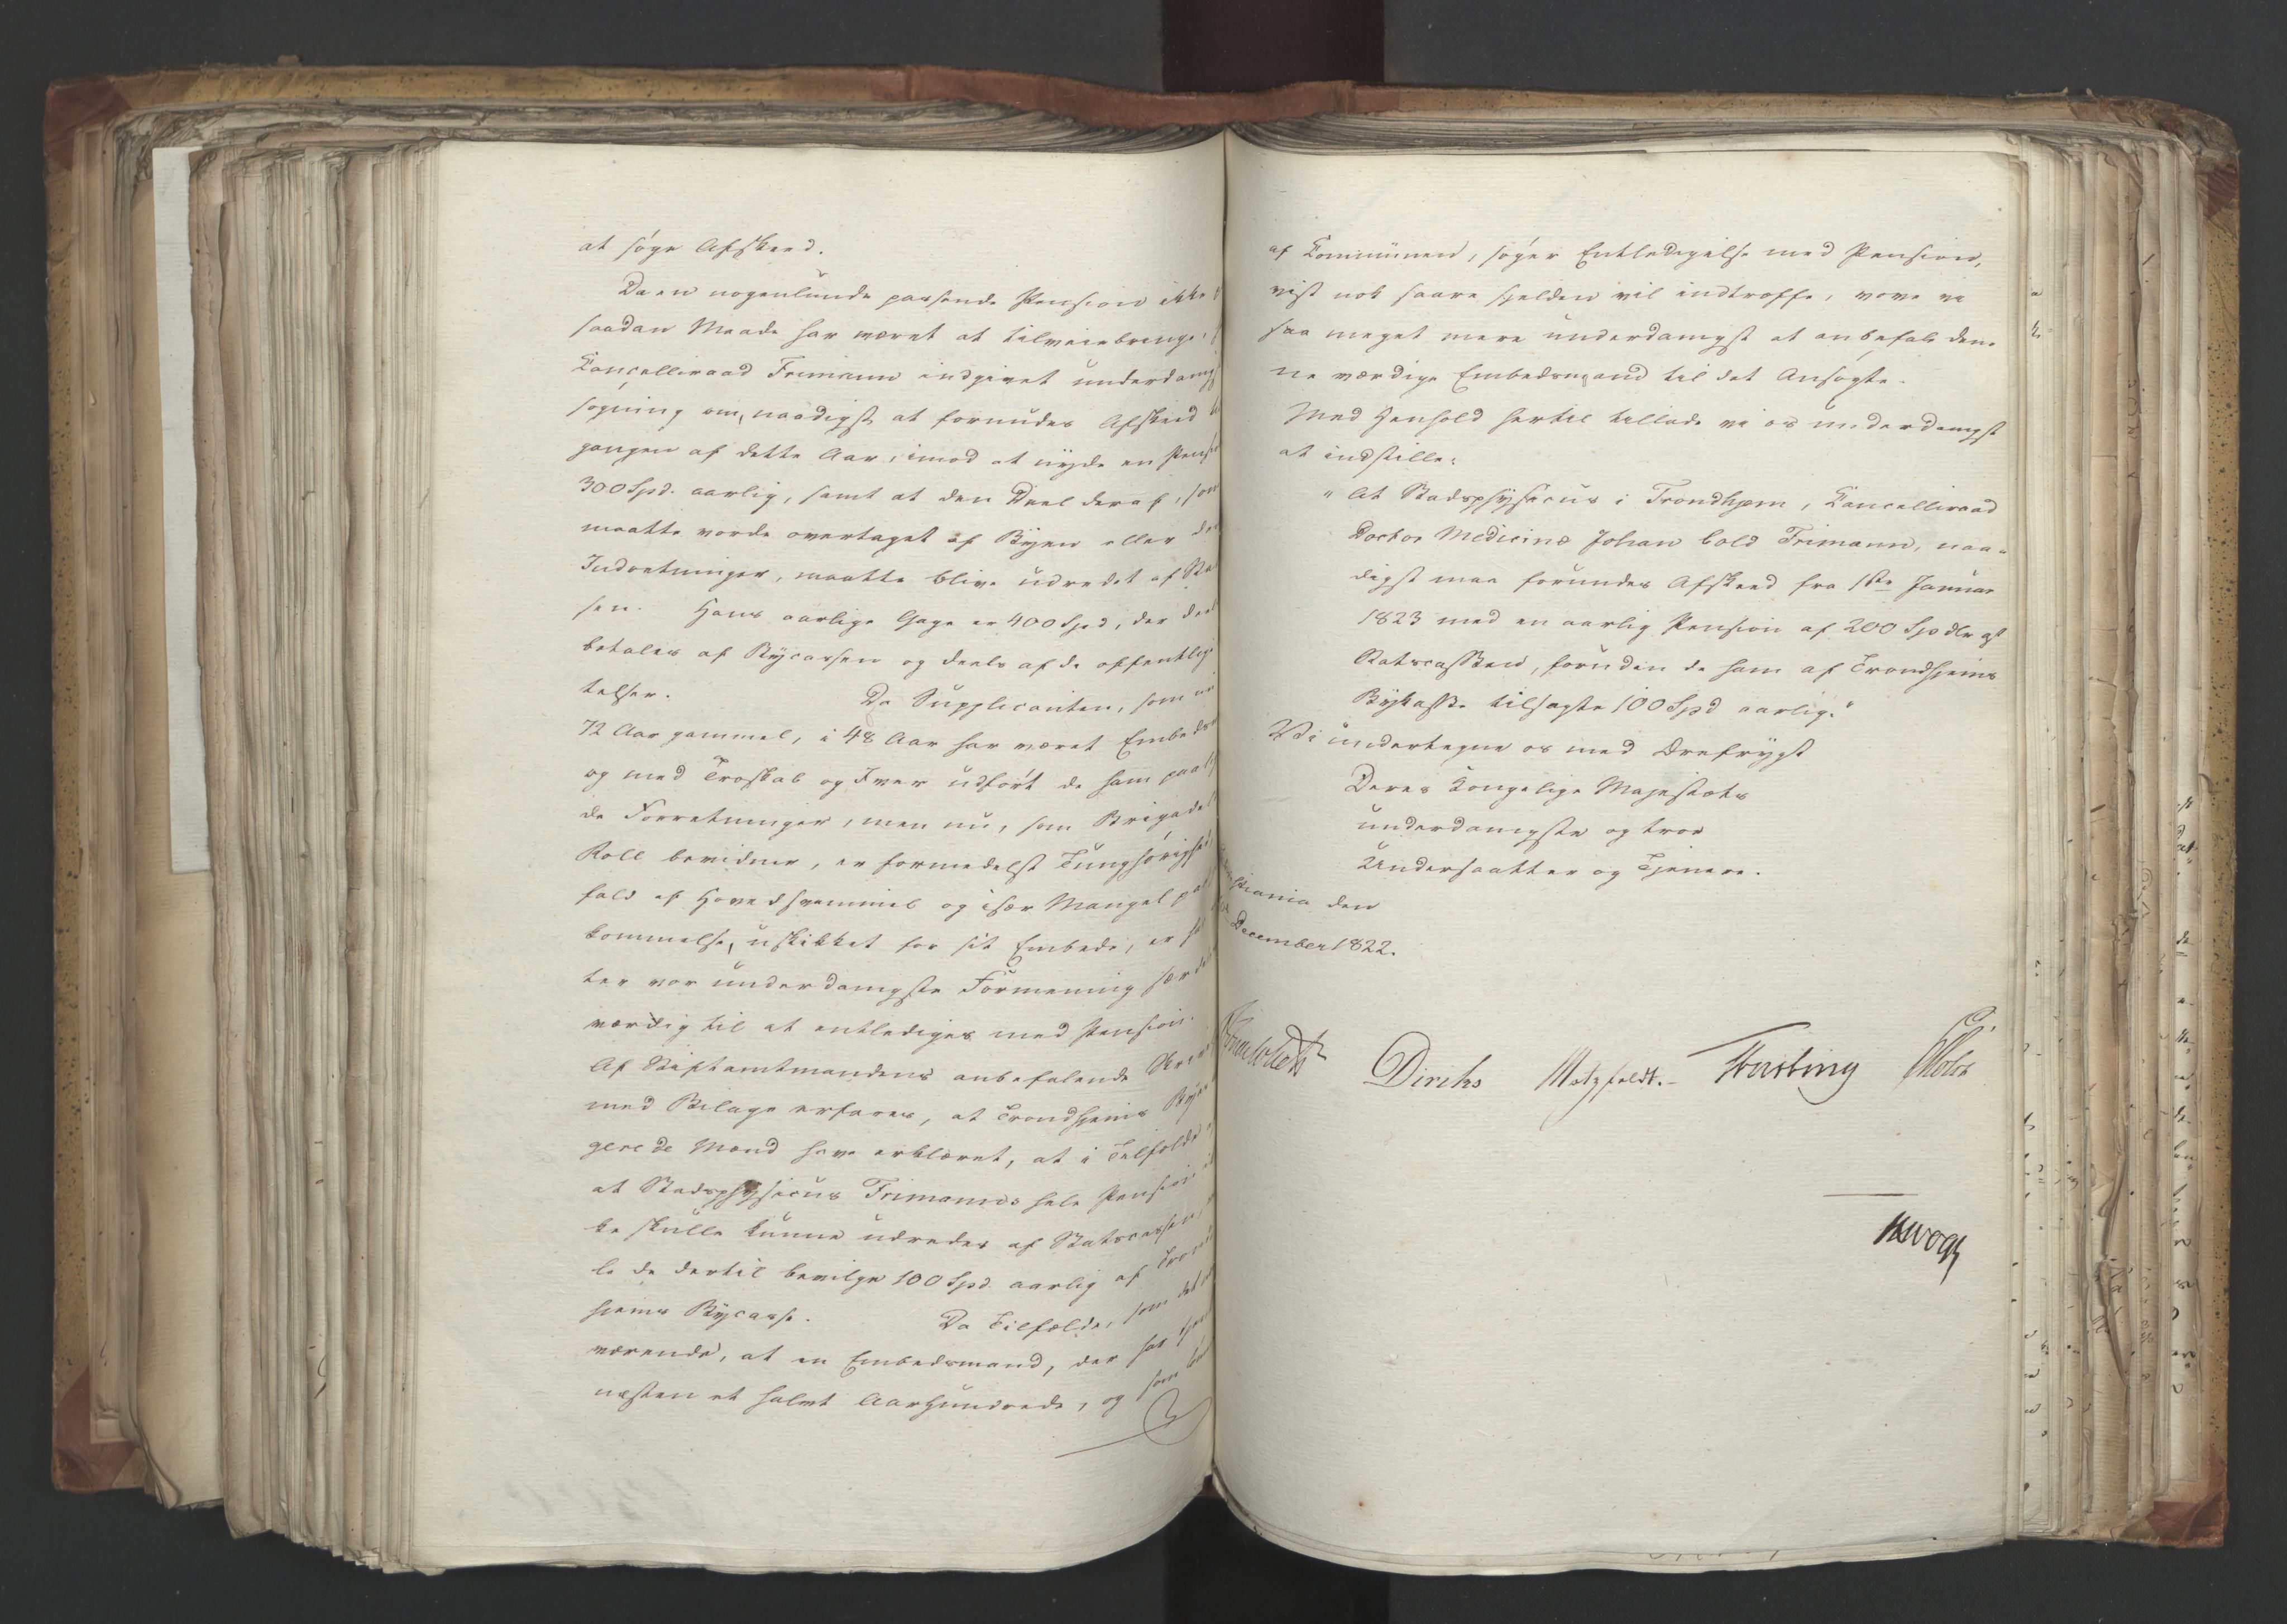 at søge Afskeed.
Da en nogenlunde passende Pension ikke
saadan Maade har været at tilveiebringe,
Cancelliraad Frimann indgivet underdanig
søgning om, naadigst at forundes Afskeed
gangen af dette Aar, imod at nyde en Pensi
300 Spd. aarlig, samt at den Deel deraf, som
maatte vorde overtaget af Byen eller de
Indretninger, maatte blive udredet af Sta
sen. Hans aarlige Gage er 400 Spd, der deel
betales af Bycassen og deels af de offentlige
telser. Da Supplicanten, som er
72 Aar gammel, i 48 Aar har været Embeds
og med Troskab og Iver udført de ham paal
de Forretninger, men nu, som Brigade
Roll bevidner, er formedelst Tunghørighed
fald af Hovedsvimmel og især Mangel paa
kommelse, uskikket for sit Embede, er
ter vor underdanigste Formening sær
værdig til at entlediges med Pension.
Af Stiftamtmandens anbefalende
med Bilage erfares, at Trondhjems Bye
gerede Mænd have erklæret, at i Tilfælde
at Stadsphysicus Frimanns hele Pension
ke skulle kunne udredes af Statscassen,
le de dertil bevilge 100 Spd. aarlig af Trond
hjems Bycasse. Da Tilfælde, som det
værende, at en Embedsmand, der har tjent
næsten et halvt Aarhundrede, og som
af Communen, søger Entledigelse med Pension,
vist nok saare sjelden vil indtræffe, vove vi
saa meget mere underdanigst at anbefale den-
ne værdige Embedsmand til det Ansøgte.
Med Henhold hertil tillade vi os underdanigst
at indstille:
"At Stadsphysicus i Trondhjem, Cancelliraad
Doctor Medicinæ Johan Cold Frimann, naa-
digst maa forundes Afskeed fra 1ste Januar
1823 med en aarlig Pension af 200 Spdlr af
Statscassen, foruden de ham af Trondhjems
Bykasse tilsagte 100 Spd aarlig."
Vi undertegne os med Ærefrygt
Deres Kongelige Majestæts
underdanigste og troe
Undersaatter og Tjenere.
stiania den
December 1822.
Sommerhielm Diriks Motzfeldt. Fasting Holst
HWogt